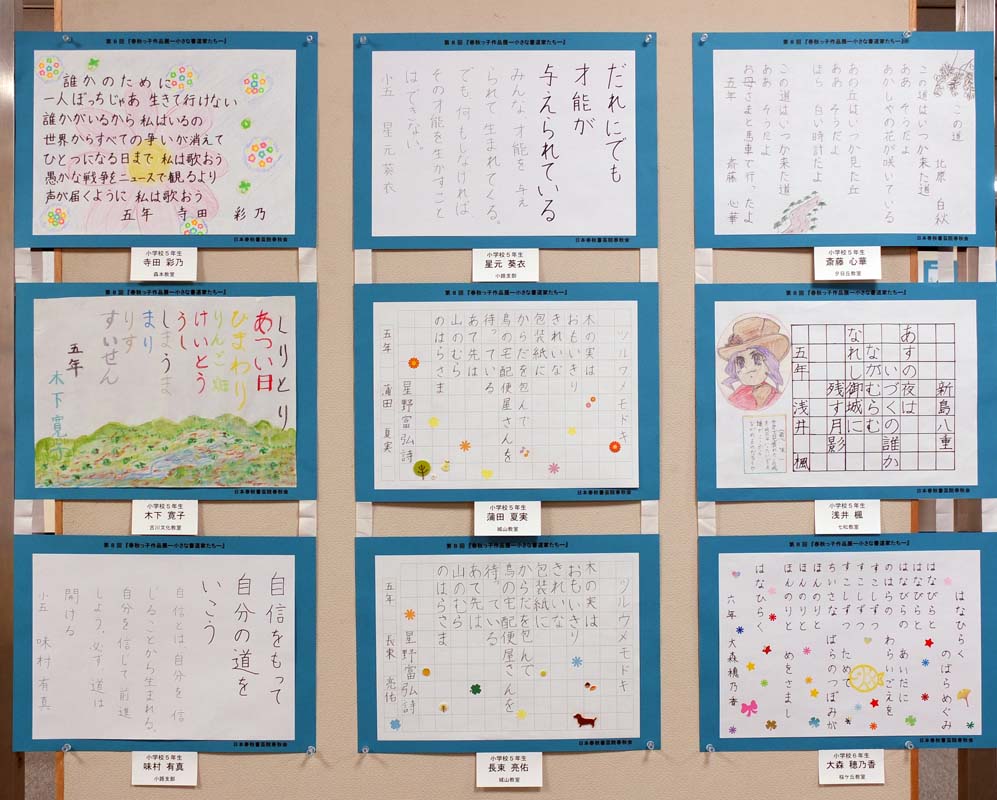 第8回『春秋っ子作品展―小さな書道家たち―』
誰かのために
一人ぼっちじゃあ 生きて行けない
誰かがいるから 私はいるの
世界からすべての争いが消えて
ひとつになる日まで 私は歌おう
愚かな戦争をニュースで観るより
声が届くように 私は歌おう
五年 寺田 彩乃
日本春秋書芸院春秋会
小学校5年生
寺田 彩乃
森本教室
第8回『春秋っ子作品展―小さな書道家たち―』
だれにでも
才能が
与えられている
みんな 才能を 与え
られて 生まれてくる。
でも 何もしなければ
その才能を生かすこと
はできない。
小五 星元葵衣
日本春秋書芸院春秋会
小学校5年生
星元 葵衣
小路支部
第8回『春秋っ子作品展―小さな書道家たち―』
この道
北原 白秋
この道はいつか来た道
ああ そうだよ
あかしやの花が咲いている
あの丘はいつか見た丘
ああ そうだよ
ほら 白い時計だよ
この道はいつか来た道
ああ そうだよ
お母さまと馬車で行ったよ
五年 斎藤 心華
日本春秋書芸院春秋会
小学校5年生
斎藤 心華
夕日丘教室
第8回『春秋っ子作品展―小さな書道家たち―』
しりとり
あつい日
ひまわり
りんご畑
けいとう
うし
しまうま
まり
りす
すいせん
五年
木下寛子
日本春秋書芸院春秋会
小学校5年生
木下 寛子
古川文化教室
第8回『春秋っ子作品展―小さな書道家たち―』
ツルウメモドキ
木の実は
おもいきり
きれいな
包装紙に
からだを包んで
鳥の宅配便屋さんを
待っている
あて先は
山のむら
のはらさま
星野富弘詩
五年 蒲田 夏実
日本春秋書芸院春秋会
小学校5年生
蒲田 夏実
城山教室
第8回『春秋っ子作品展―小さな書道家たち―』
新島八重
あすの夜は
いづくの誰か
ながむらむ
なれし御城に
残す月影
五年 浅井 楓
日本春秋書芸院春秋会
小学校5年生
浅井 楓
七松教室
第8回『春秋っ子作品展―小さな書道家たち―』
自信をもって
自分の道を
いこう
自信とは 自分を 信
じることから生まれる。
自分を 信じて 前進
しよう、必ず 道は
開ける
小五 味村有真
日本春秋書芸院春秋会
小学校5年生
味村 有真
小路支部
第8回『春秋っ子作品展―小さな書道家たち―』
ツルウメモドキ
木の実は
おもいきり
きれいな
包装紙に
からだを包んで
鳥の宅配便屋さんを
待っている
あて先は
山のむら
のはらさま
星野富弘詩
五年 長束 亮佑
日本春秋書芸院春秋会
小学校5年生
長束 亮佑
城山教室
第8回『春秋っ子作品展―小さな書道家たち―』
はなひらく
のばらめぐみ
はなびらと
はなびらの あいだに
のはらの わらいごえを
すこしずつ
すこしずつ ためて
ちいさな ばらのつぼみが
ほんのりと
ほんのりと めをさまし
はなひらく
六年 大森穂乃香
日本春秋書芸院春秋会
小学校6年生
大森 穂乃香
桜ケ丘教室